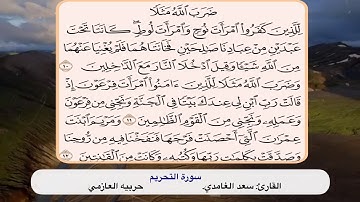 ضَرَبَ ٱللَّهُ مَثَلًا
لِّلَّذِينَ كَفَرُوا۟ ٱمْرَأَتَ نُوحٍ وَٱمْرَأَتَ لُوطٍ ۖ كَانَتَا تَحْتَ
عَبْدَيْنِ مِنْ عِبَادِنَا صَٰلِحَيْنِ فَخَانَتَاهُمَا فَلَمْ يُغْنِيَا عَنْهُمَا
مِنَ ٱللَّهِ شَيْـًٔا وَقِيلَ ٱدْخُلَا ٱلنَّارَ مَعَ ٱلدَّٰخِلِينَ ١٠
وَضَرَبَ ٱللَّهُ مَثَلًا لِّلَّذِينَ ءَامَنُوا۟ ٱمْرَأَتَ فِرْعَوْنَ إِذْ
قَالَتْ رَبِّ ٱبْنِ لِى عِندَكَ بَيْتًا فِى ٱلْجَنَّةِ وَنَجِّنِى مِن فِرْعَوْنَ
وَعَمَلِهِۦ وَنَجِّنِى مِنَ ٱلْقَوْمِ ٱلظَّٰلِمِينَ ١١ وَمَرْيَمَ ٱبْنَتَ
عِمْرَٰنَ ٱلَّتِىٓ أَحْصَنَتْ فَرْجَهَا فَنَفَخْنَا فِيهِ مِن رُّوحِنَا
وَصَدَّقَتْ بِكَلِمَٰتِ رَبِّهَا وَكُتُبِهِۦ وَكَانَتْ مِنَ ٱلْقَٰنِتِينَ ١٢
سورة التحريم
القارئ: سعد الغامدي. حربيه العازمي